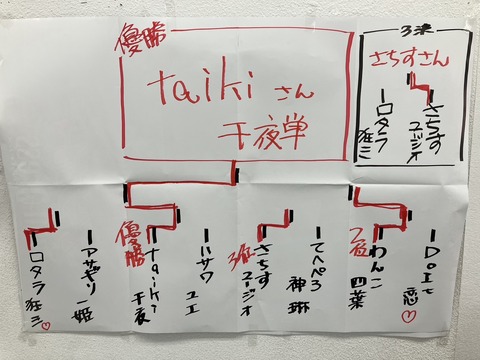 優勝
taikiさん
千夜単
3決
さちすさん
さちす
ユージオ
ロタラ
狂三
DoIt
恋♡
2位
わんこ
四葉
てへぺろ
神琳
3位
さちす
ユージオ
ハサワ
ユエ
優勝
taiki
千夜
アサギリ
一姫
ロタラ
狂三